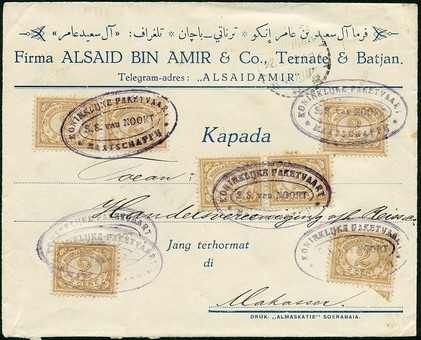 فرما آل سعيد بن عامر إنكو * ترناتي_باچان * تلغراف: «آل سعيد عامر»
Firma ALSAID BIN AMIR & Co., Ternate & Batjan.
Telegram-adres: "ALSAIDAMIR"
KONINKLIJKE PAKETVAART
S.S. van NOORT
MAATSCHAPPIJ
KONINKLIJKE PAKETVAART
S.S. van NOORT
MAATSCHAPPIJ
Kapada
KONINKLIJKE PAKETVAART
S.S. van NOORT
Toean:
Handelsvereeniging v/h Reiss
KONINKLIJKE PAKETVAART
2
CENT
Jang terhormat
di
KONINKLIJKE PAKETVAART
NOORT
2
CENT
Makasser.
DRUK: „ALMASKATIE" SOERABAIA.